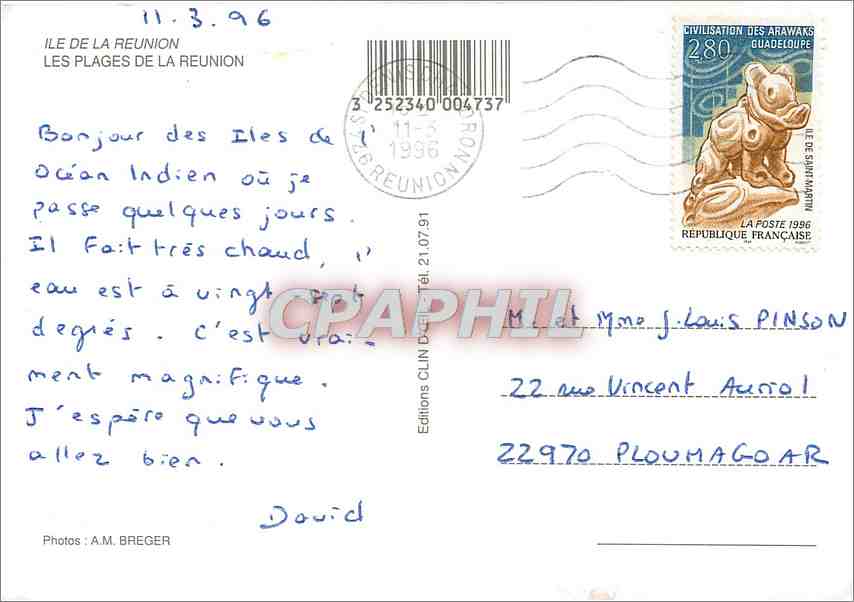 11.3.96
ILE DE LA REUNION
LES PLAGES DE LA REUNION
3 252340 004737
11-3
1996
REUNION
CIVILISATION DES ARAWAKS
GUADELOUPE
2,80
ILE DE SAINT-MARTIN
LA POSTE 1996
RÉPUBLIQUE FRANÇAISE
Bonjour des Iles de l'
Océan Indien où je
passe quelques jours.
Il fait très chaud, l'
eau est à vingt sept
degrés. C'est vrai-
ment magnifique.
J'espère que vous
allez bien.
David
Photos : A.M. BREGER
Editions CLIN D'ŒIL - Tél. 21.07.91
CPAPHIL
M. et Mme J. Louis PINSON
22 rue Vincent Auriol
22970 PLOUMAGOAR